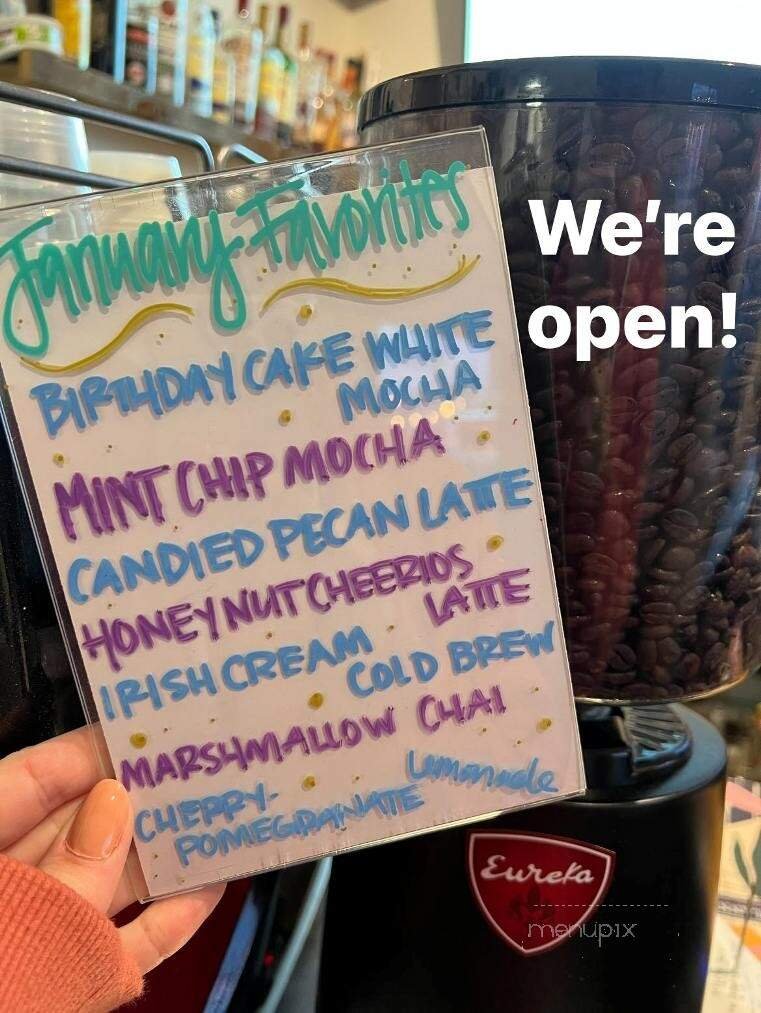 January Favorites
BIRTHDAY CAKE WHITE
MOCHA
MINT CHIP MOCHA
CANDIED PECAN LATTE
HONEY NUT CHEERIOS
LATTE
IRISH CREAM
COLD BREW
MARSHMALLOW CHAI
CHERRY-
POMEGRANATE
Lemonade
We're
open!
Eureka
menupix